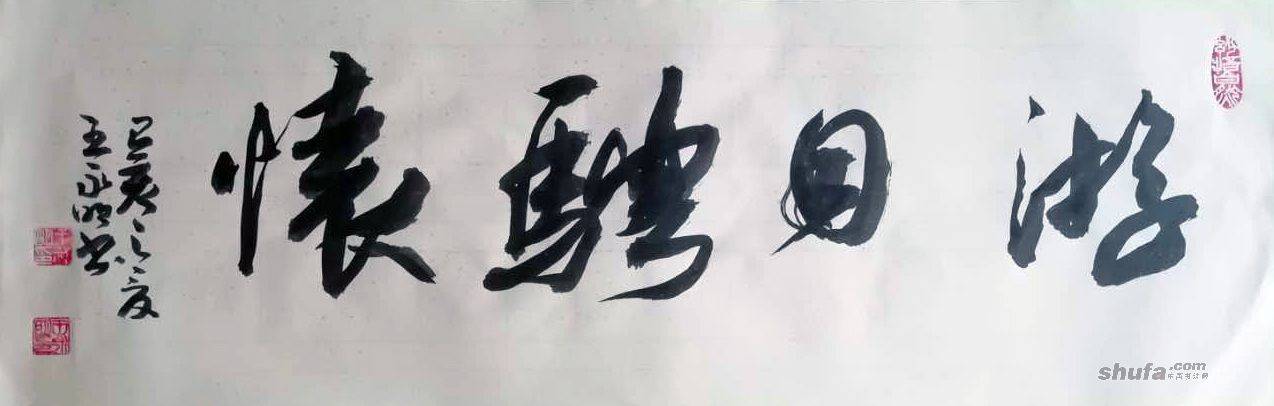 游目騁懷
己亥之夏
王永明书
shufa.com